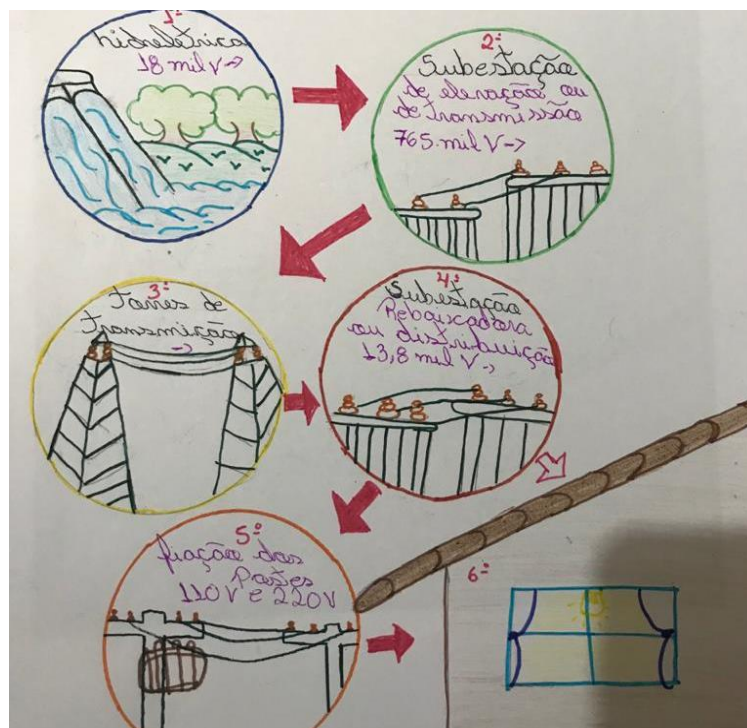 1º
hidreletrica
18 mil V →
2º
Subestação
de elevação ou
de transmissão
765. mil V →
3º
Torres de
transmição
→
4º
Subestação
Rebaixadora
ou distribuição
13,8 mil V →
5º
fiação dos
Postes
110V e 220V
6º